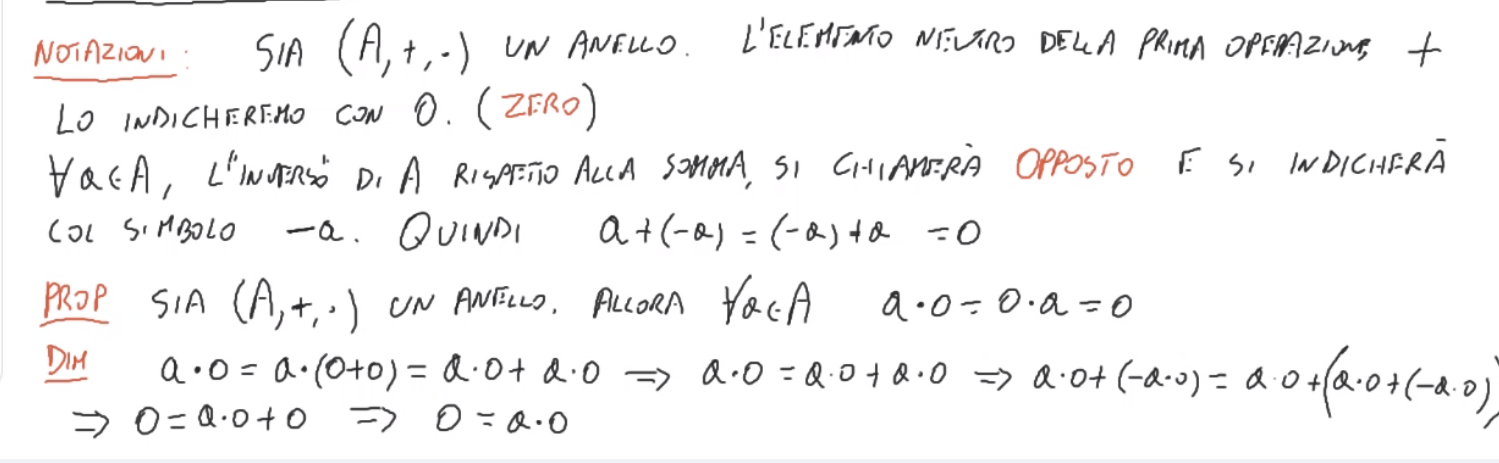 NOTAZIONI: SIA (A,+,·) UN ANELLO. L'ELEMENTO NEUTRO DELLA PRIMA OPERAZIONE +
LO INDICHEREMO CON 0. (ZERO)
∀a∈A, L'"INVERSO" DI A RISPETTO ALLA SOMMA, SI CHIAMERÀ OPPOSTO E SI INDICHERÀ
COL SIMBOLO -a. QUINDI a+(-a) = (-a)+a = 0
PROP SIA (A,+,·) UN ANELLO. ALLORA ∀a∈A a·0 = 0·a = 0
DIM a·0 = a·(0+0) = a·0 + a·0 ⇒ a·0 = a·0 + a·0 ⇒ a·0+(-a·0) = a·0+(a·0+(-a·0))
⇒ 0 = a·0+0 ⇒ 0 = a·0